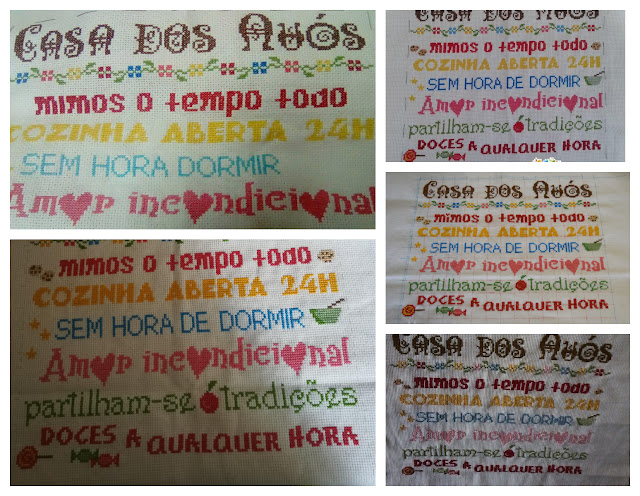 Casa dos Avós
mimos o tempo todo
COZINHA ABERTA 24H
SEM HORA DORMIR
Am♥r inc♥ndici♥nal
mimos o tempo todo
COZINHA ABERTA 24H
SEM HORA DE DORMIR
Am♥r inc♥ndici♥nal
partilham-se tradições
DOCES A QUALQUER HORA
Casa dos Avós
mimos o tempo todo
COZINHA ABERTA 24H
SEM HORA DE DORMIR
Am♥r inc♥ndici♥nal
partilham-se tradições
DOCES A QUALQUER HORA
Casa dos Avós
mimos o tempo todo
COZINHA ABERTA 24H
SEM HORA DE DORMIR
Am♥r inc♥ndici♥nal
partilham-se tradições
DOCES A QUALQUER HORA
Casa dos Avós
mimos o tempo todo
COZINHA ABERTA 24H
SEM HORA DE DORMIR
Am♥r inc♥ndici♥nal
partilham-se tradições
DOCES A QUALQUER HORA